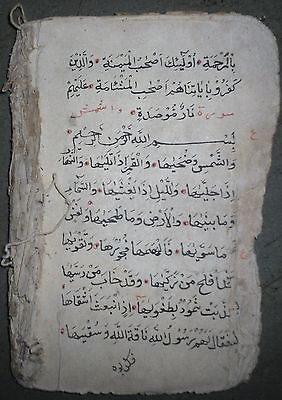 بِالْمَرْحَمَةِ أُولَٰئِكَ أَصْحٰبُ الْمَيْمَنَةِ وَالَّذِينَ
كَفَرُوا بِآيَاتِنَا هُمْ أَصْحٰبُ الْمَشْئَمَةِ عَلَيْهِمْ
سورة نَارٌ مُوصَدَةٌ والشمس
بِسْمِ اللهِ الرَّحْمٰنِ الرَّحِيمِ
ع
وَالشَّمْسِ وَضُحٰيهَا وَالْقَمَرِ إِذَا تَلٰيهَا وَالنَّهَارِ
إِذَا جَلّٰيهَا وَاللَّيْلِ إِذَا يَغْشٰيهَا وَالسَّمَاءِ
وَمَا بَنٰيهَا وَالْأَرْضِ وَمَا طَحٰيهَا وَنَفْسٍ
وَمَا سَوّٰيهَا فَأَلْهَمَهَا فُجُورَهَا وَتَقْوٰيهَا
قَدْ أَفْلَحَ مَنْ زَكّٰيهَا وَقَدْ خَابَ مَنْ دَسّٰيهَا
كَذَّبَتْ ثَمُودُ بِطَغْوٰيهَا إِذِ انْبَعَثَ أَشْقٰاهَا
فَقَالَ لَهُمْ رَسُولُ اللهِ نَاقَةَ اللهِ وَسُقْيٰيهَا
فكذبوه